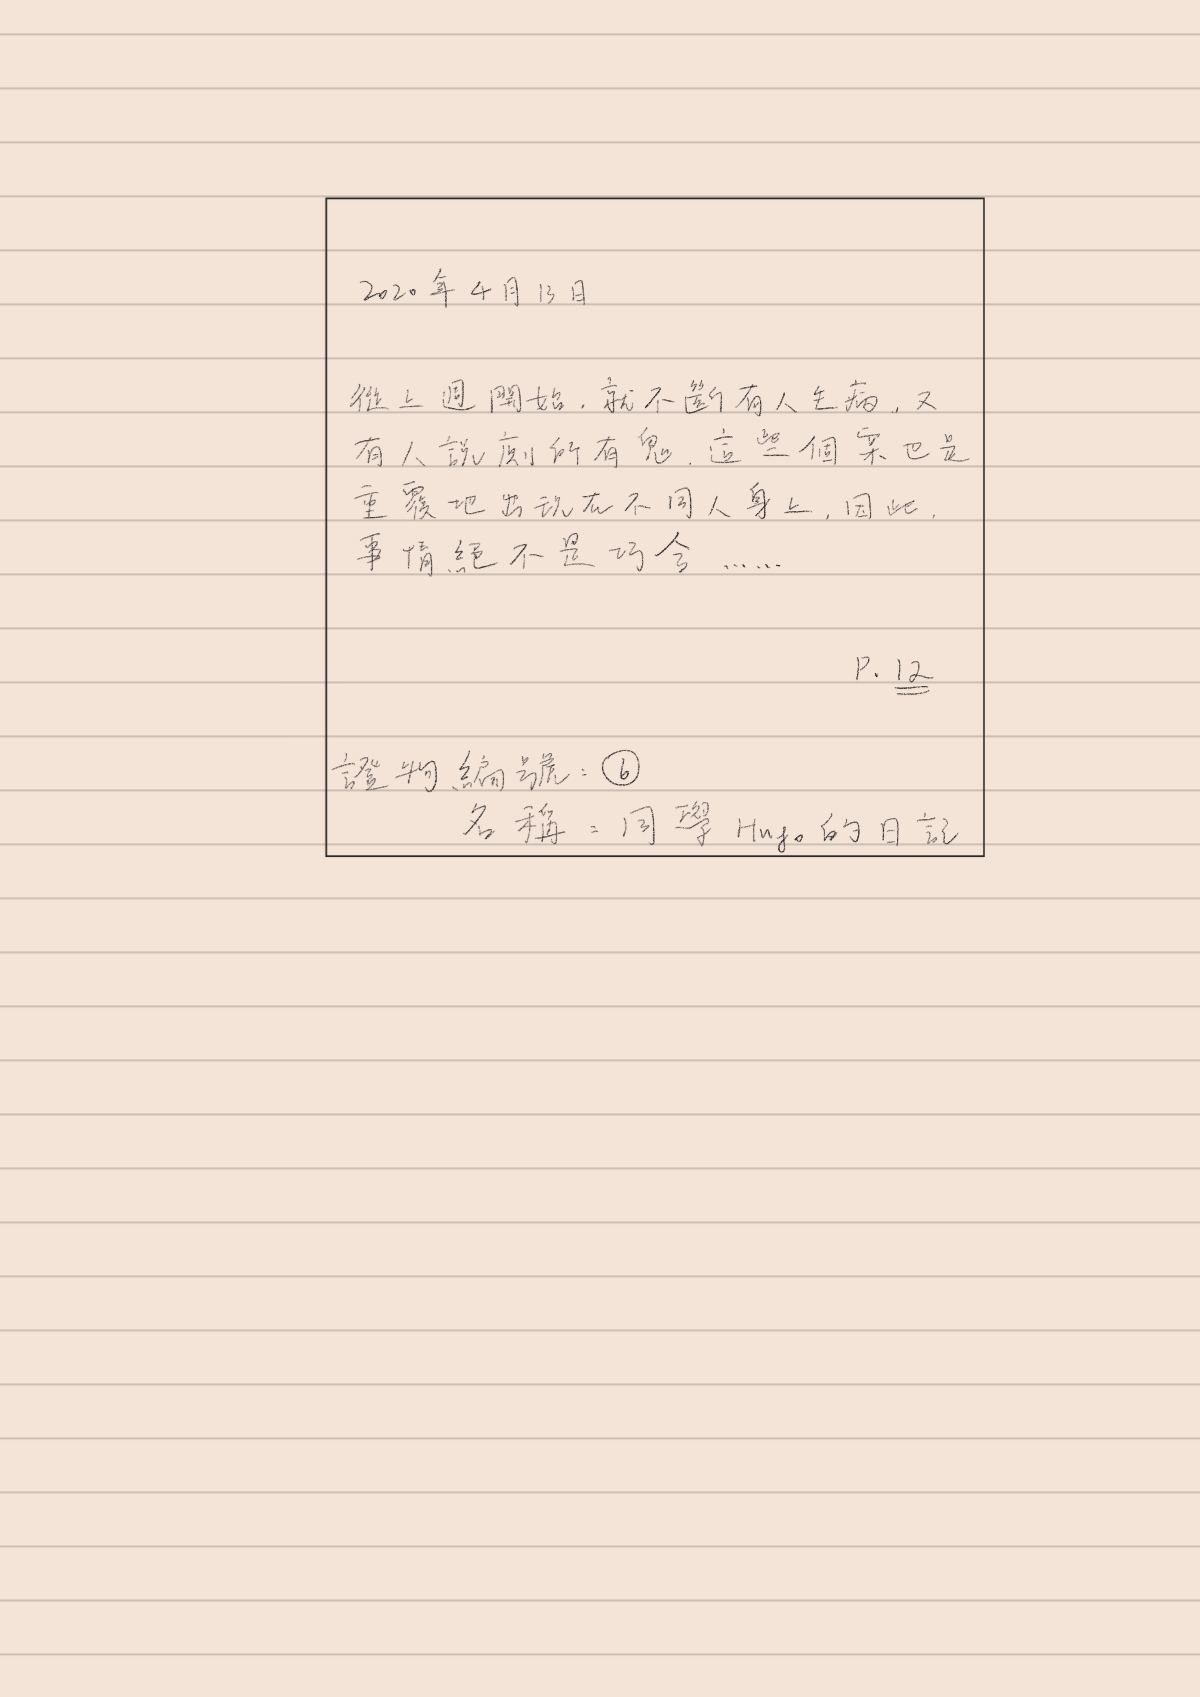 2020年4月13日
從上週開始，就不斷有人生病，又
有人說廁所有鬼，這些個案也是
重覆地出現在不同人身上，因此，
事情絕不是巧合……
P. 12
證物編號：⑥
名稱：同學Hugo的日記